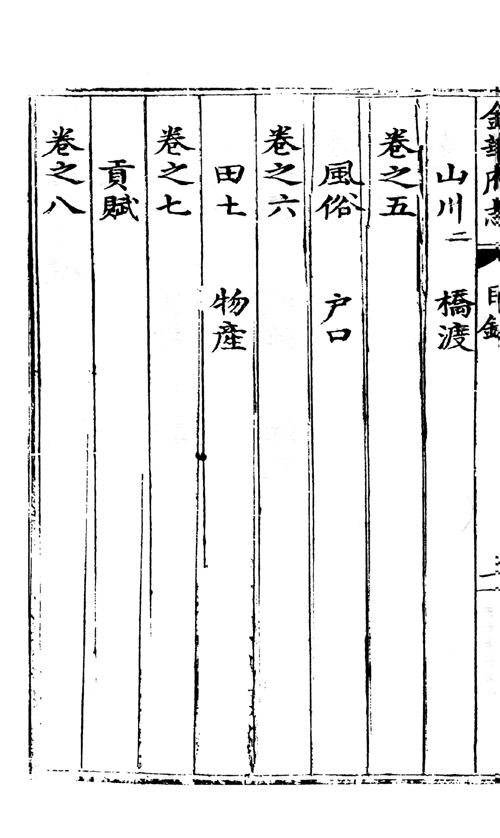 金華府志
目錄
山川二 橋渡
卷之五
風俗 户口
卷之六
田土 物產
卷之七
貢賦
卷之八